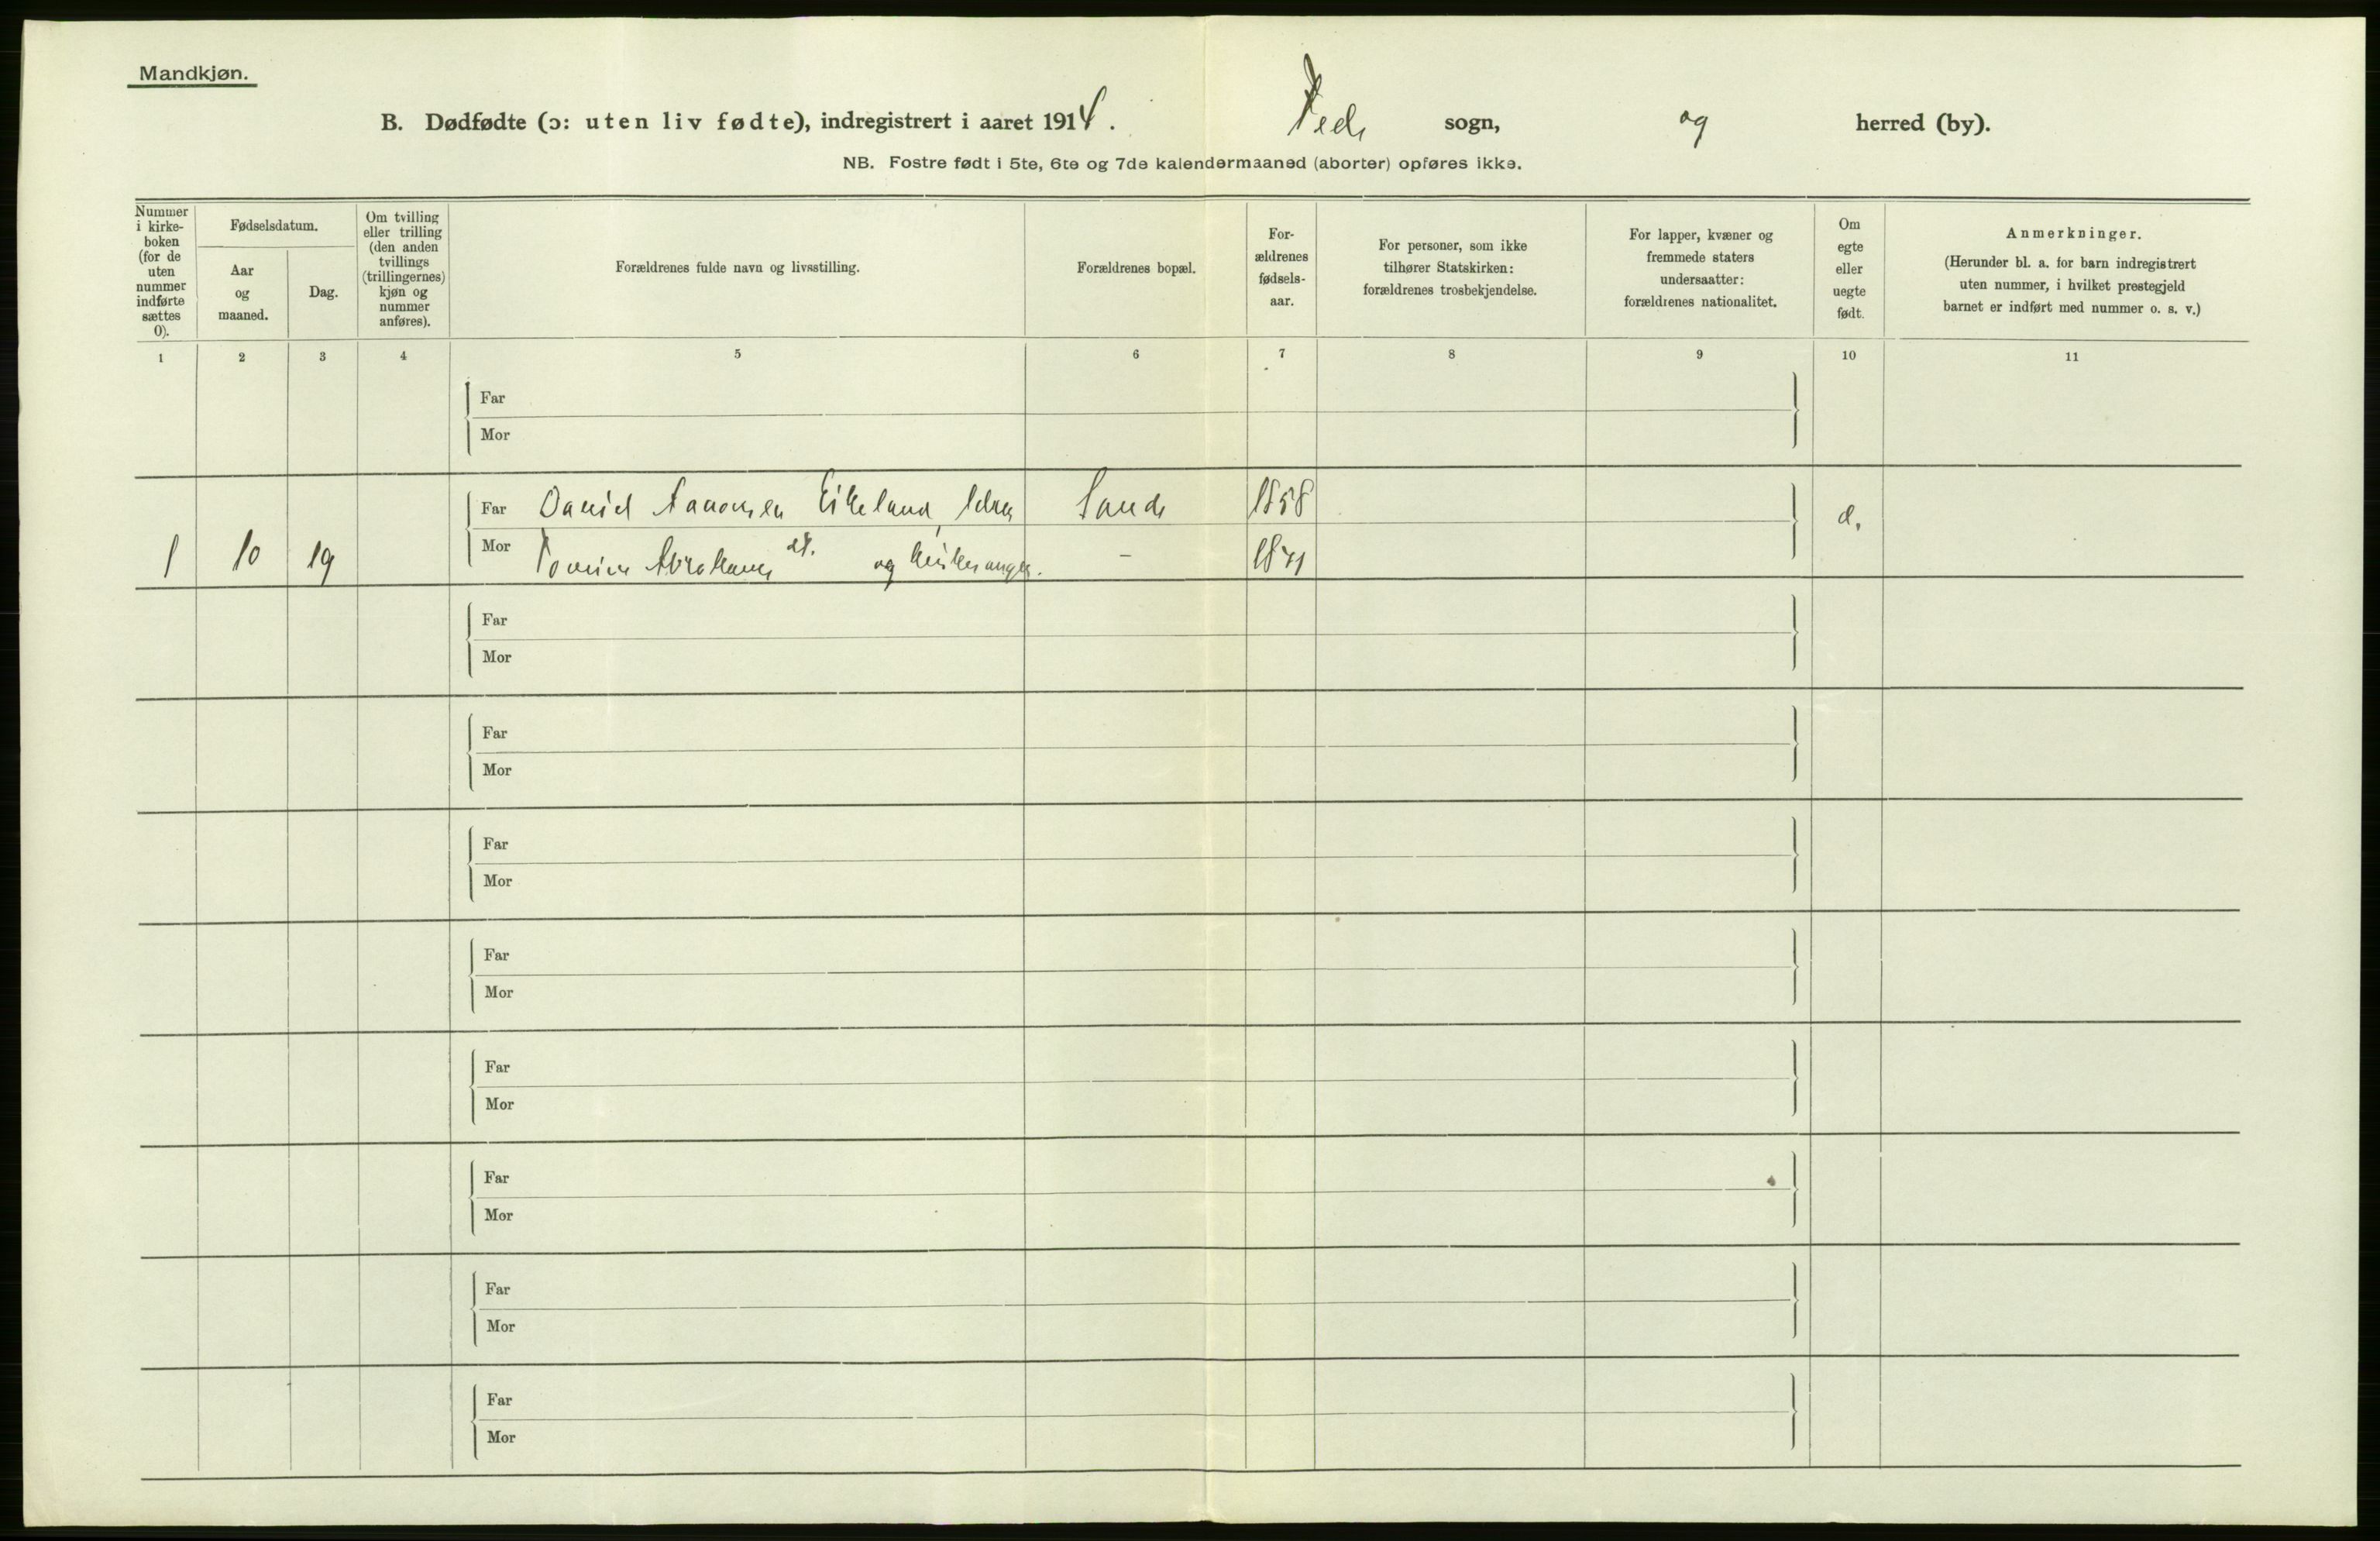 Mandkjøn.
B. Dødfødte (ɔ: uten liv fødte), indregistrert i aaret 1914. sogn, og herred (by).
NB. Fostre født i 5te, 6te og 7de kalendermaaned (aborter) opføres ikke.
Nummer
i kirke-
boken
(for de
uten
nummer
indførte
sættes
0).
Fødselsdatum.
Aar
og
maaned.
Dag.
Om tvilling
eller trilling
(den anden
tvillings
(trillingernes)
kjøn og
nummer
anføres).
Forældrenes fulde navn og livsstilling.
Forældrenes bopæl.
For-
ældrenes
fødsels-
aar.
For personer, som ikke
tilhører Statskirken:
forældrenes trosbekjendelse.
For lapper, kvæner og
fremmede staters
undersaatter:
forældrenes nationalitet.
Om
egte
eller
uegte
født.
Anmerkninger.
(Herunder bl. a. for barn indregistrert
uten nummer, i hvilket prestegjeld
barnet er indført med nummer o. s. v.)
1 2 3 4 5 6 7 8 9 10 11
Far
Mor
Far Daniel Aanonsen Eikeland, 1858
1 10 19 Mor og – 1871
Far
Mor
Far
Mor
Far
Mor
Far
Mor
Far
Mor
Far
Mor
Far
Mor
Far
Mor